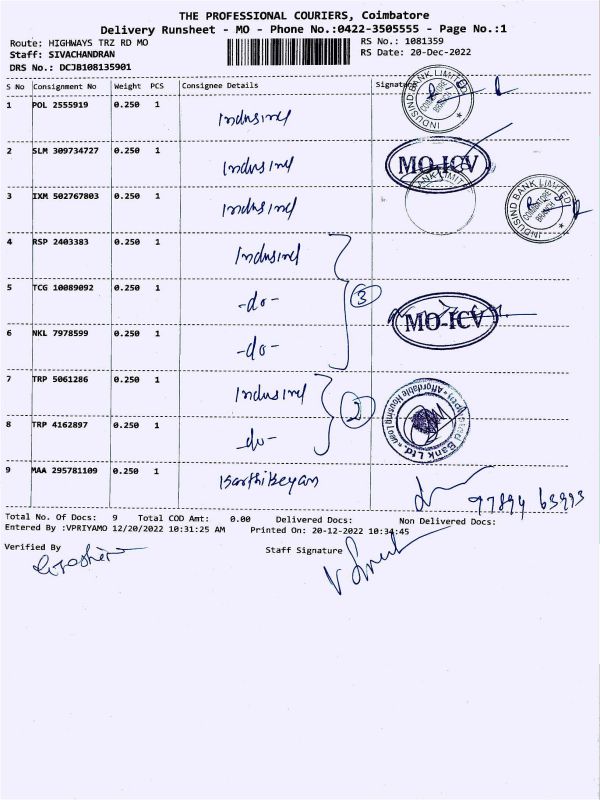 THE PROFESSIONAL COURIERS, Coimbatore
Delivery Runsheet - MO - Phone No.:0422-3505555 - Page No.:1
Route: HIGHWAYS TRZ RD MO RS No.: 1081359
Staff: SIVACHANDRAN RS Date: 20-Dec-2022
DRS No.: DCJB108135901
S No Consignment No Weight PCS Consignee Details Signature
1 POL 2555919 0.250 1 Indusind
INDUSIND BANK LIMITED COIMBATORE BRANCH
2 SLM 309734727 0.250 1 Indusind MO-ICV
3 IXM 502767803 0.250 1 Indusind
INDUSIND BANK LIMITED COIMBATORE BRANCH
4 RSP 2403383 0.250 1 Indusind
5 TCG 10089092 0.250 1 -do- 3 MO-ICV
6 NKL 7978599 0.250 1 -do-
7 TRP 5061286 0.250 1 Indusind
8 TRP 4162897 0.250 1 -do-
9 MAA 295781109 0.250 1 Karthikeyan
97894 63993
Total No. Of Docs: 9 Total COD Amt: 0.00 Delivered Docs: Non Delivered Docs:
Entered By :VPRIYAMO 12/20/2022 10:31:25 AM Printed On: 20-12-2022 10:34:45
Verified By Staff Signature